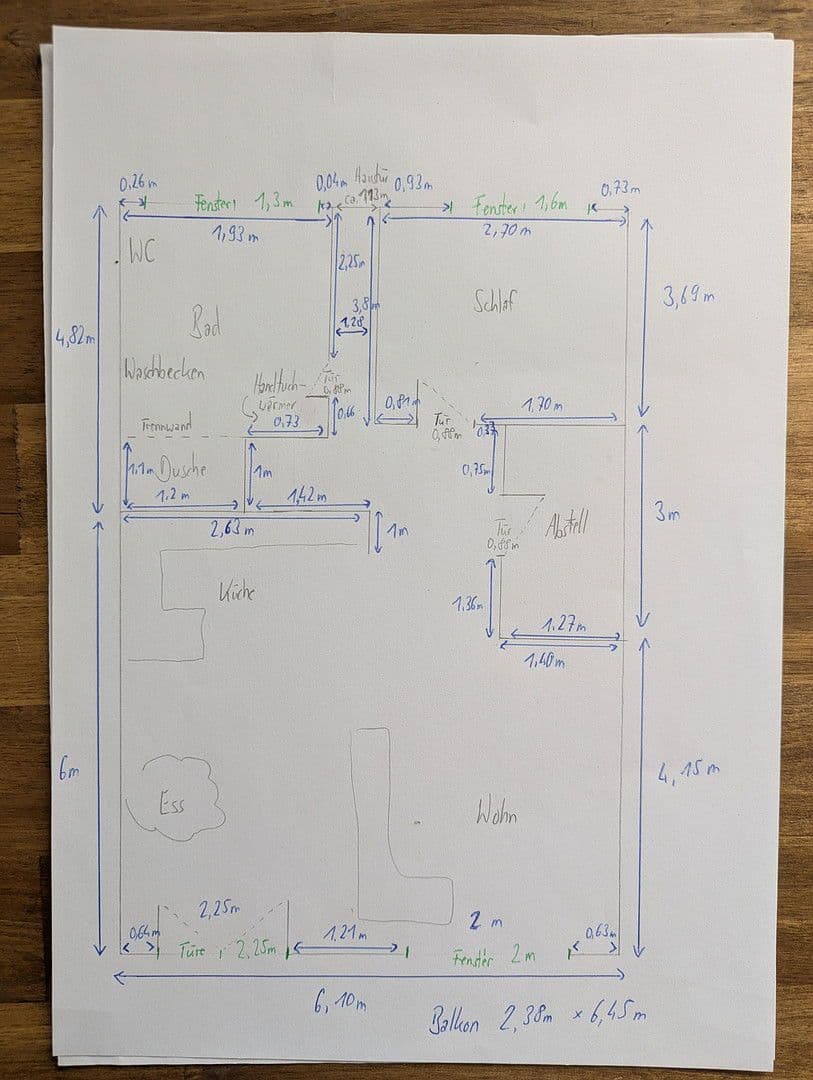 0,26m
Fenster: 1,3m
0,04m
Haustür
ca. 1,13m
0,93m
Fenster: 1,6m
0,73m
1,93m
2,70m
WC
2,25m
3,69m
Schlaf
3,8m
Bad
1,28
4,82m
Waschbecken
Handtuch-
wärmer
Tür
0,88m
0,73
0,66
0,81m
Tür
0,88m
1,70m
Trennwand
0,37
1.1m
Dusche
1m
0,75m
1.2m
1,42m
3m
2,63m
1m
Tür
0,88m
Abstell
Küche
1,36m
1.27m
1,40m
6m
4,15m
Ess
Wohn
2,25m
2 m
0,64m
Türe : 2,25m
1,21m
Fenster 2m
0,63m
6,10m
Balkon 2,38m × 6,45m